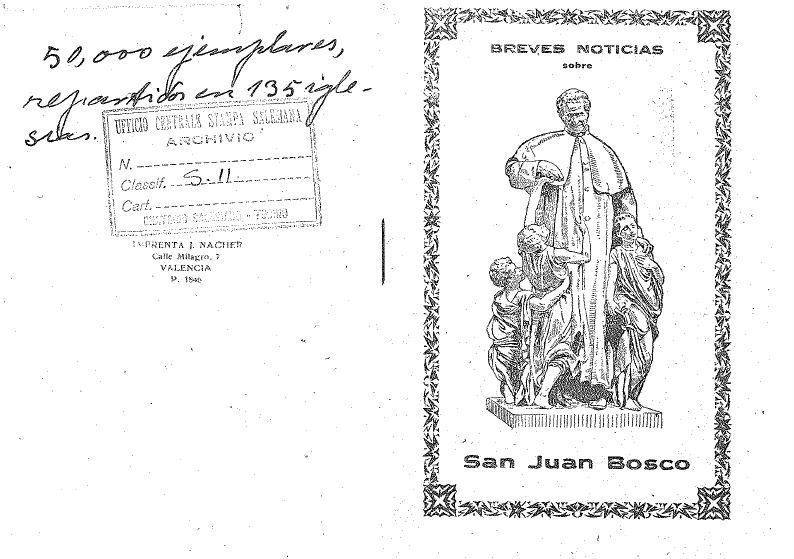 50,000 ejemplares,
repartidos en 135 igle-
sias.
UFFICIO CENTRALE STAMPA SALESIANA
ARCHIVIO
N.
Classif. S. 11.
Cart.
TORINO
IMPRENTA J. NACHER
Calle Milagro, 7
VALENCIA
BREVES NOTICIAS
sobre
San Juan Bosco